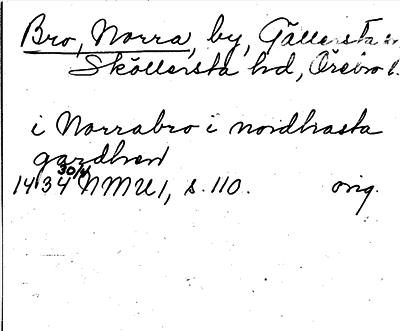 Bro, Norra, by, Gällersta sn,
Sköllersta hd, Örebro l.
i Norrabro i nordhrasta
gardhren
1434 30/4 NMU 1, s. 110. orig.